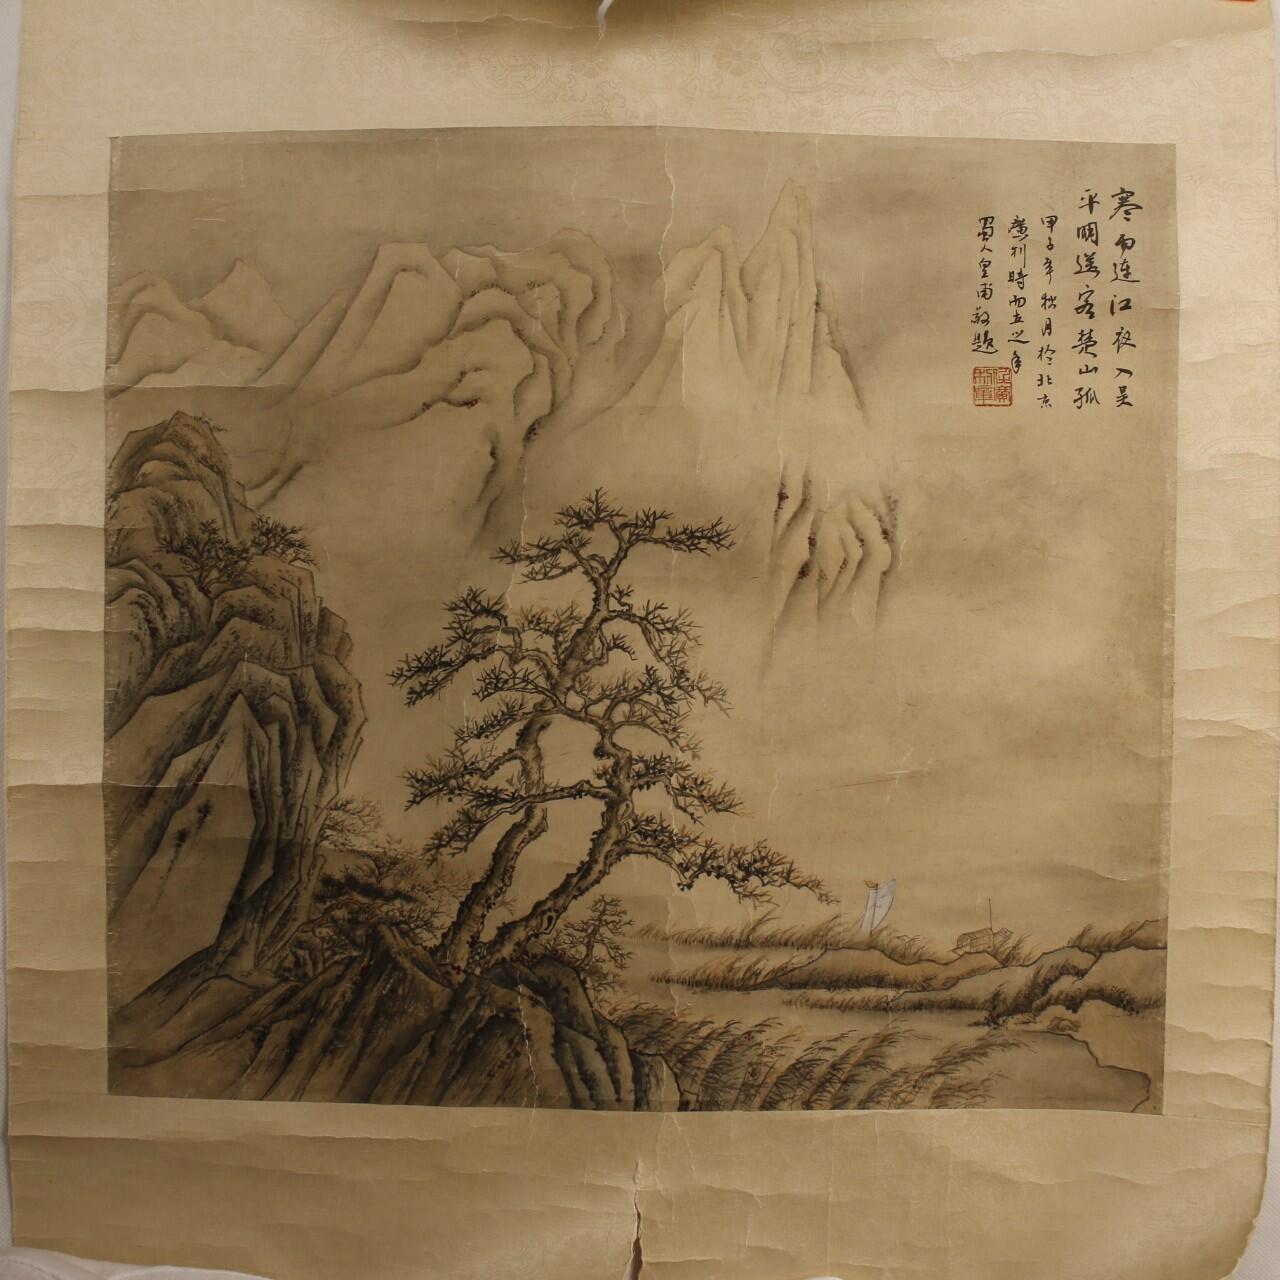 寒雨連江夜入吳
平明送客楚山孤
甲子年秋月於北京
廣利時而立之年
蜀人皇甫敬題